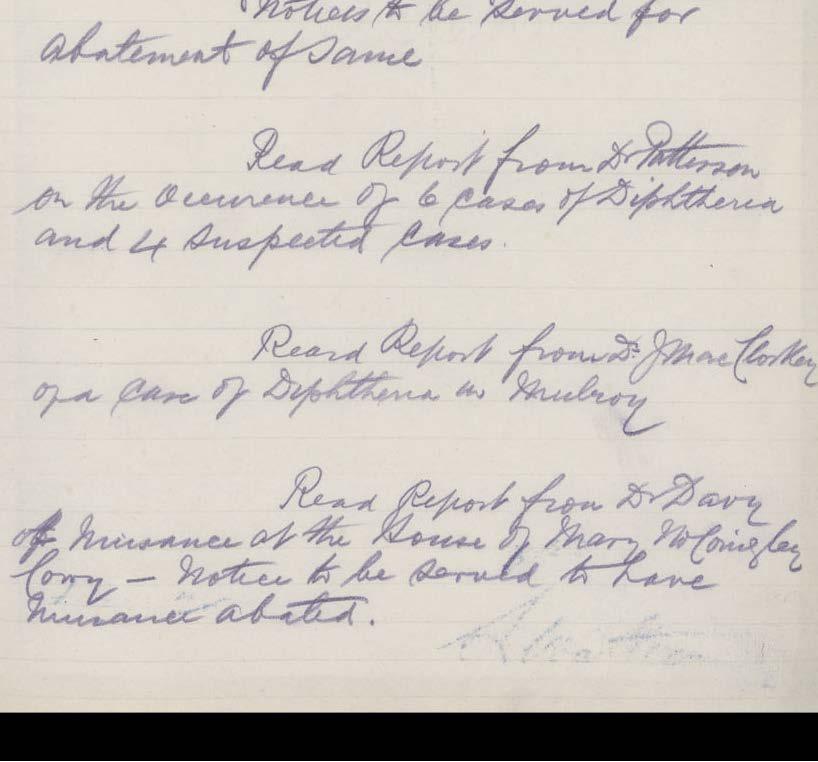 Notices to be served for
abatement of same
Read Report from Dr Patterson
on the Occurence of 6 cases of Diphtheria
and 4 suspected cases.
Reard Report from Dr J Mac Closkey
of a case of Diphtheria in Mulroy
Read Report from Dr Davy
of Nuisance at the House of Mary McConigley
Cony – Notice to be served to have
Nuisance abated.